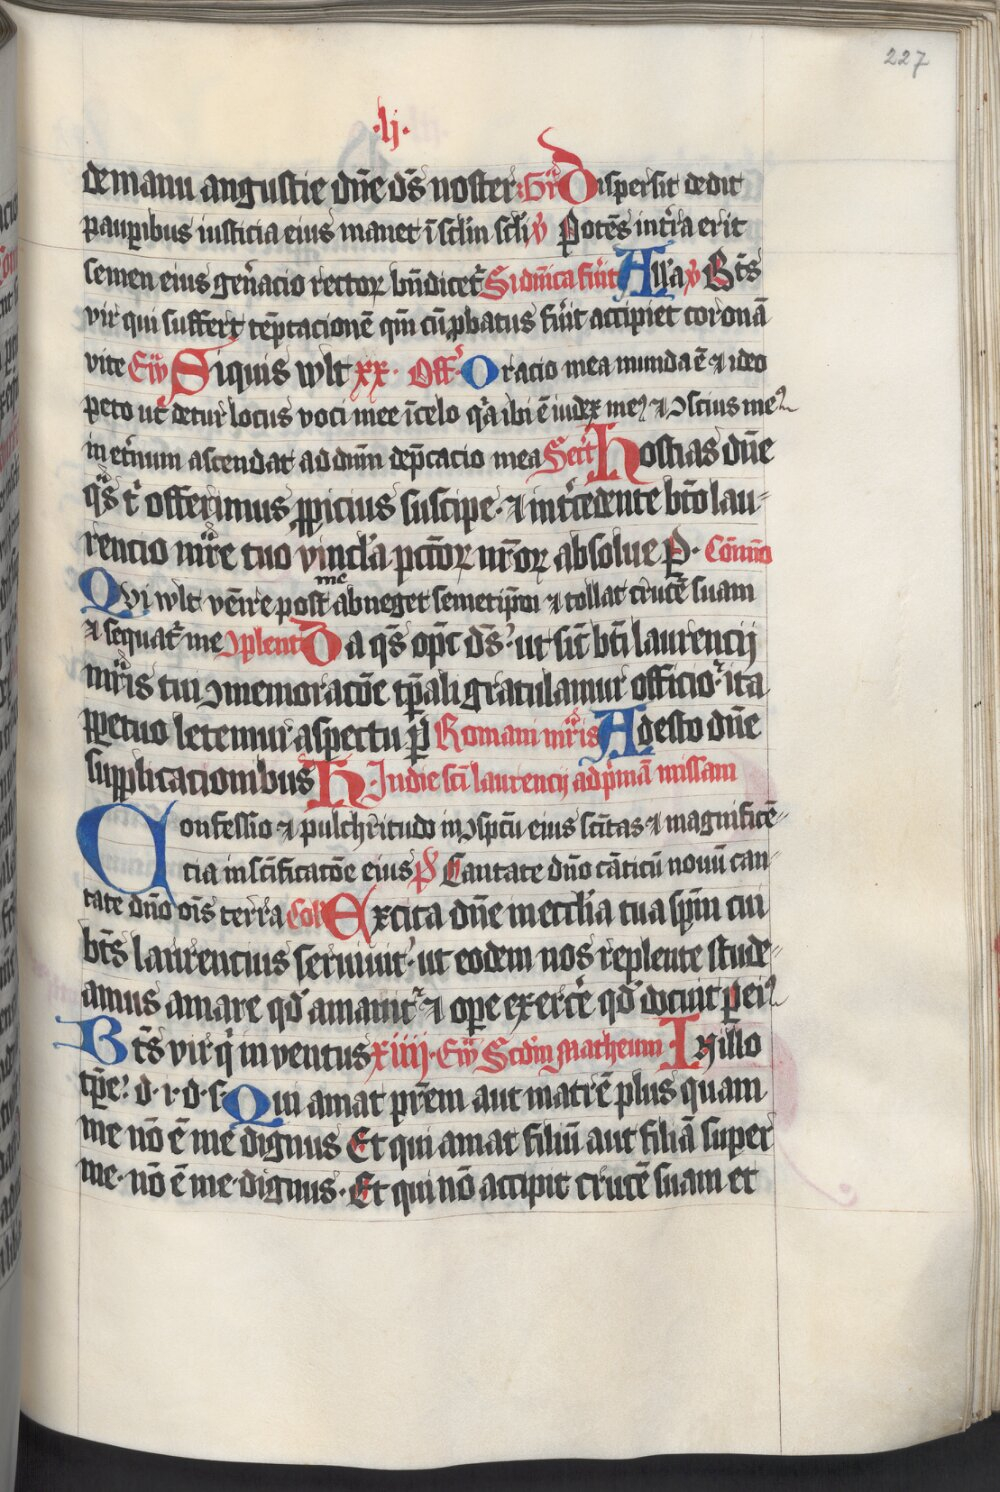 227
·lj·
de manu angustie dn̄e ds̄ noster: Gr̄ Dispersit dedit
pauꝑibus iusticia eius manet ī sclm̄ scl̄i ꝟ Potēs int̄ra erit
semen eius gen̄acio rectoꝝ bn̄dicet᷑ Si dn̄ica fūit All'a ꝟ Bt̄s
vir qui suffert tēptacionē qm̄ cū ꝓbatus fūit accipiet coronā
vite Ew̄ Siquis wlt xx. Off' Oracio mea munda ē ⁊ ideo
peto ut detur locus voci mee ī celo q̄a ibi ē iudex me⁹ ⁊ ꝯscius me⁹
in et̄num ascendat ad dn̄m dep̄cacio mea Secr̄ Hostias dn̄e
qs̄ t' offerimus ꝓpicius suscipe· ⁊ int̄cedente bt̄o lau-
rencio mr̄e tuo vincl'a pct̄oꝝ nr̄oꝝ absolue P· Cōmūo
Qvi wlt vēire post me abneget semetip̄m ⁊ tollat crucē suam
⁊ sequat᷑ me ꝯplent Da qs̄ opc̄ ds̄· ut sic̄ bt̄i laurencij
mr̄is tui ꝯmemoracōe tp̄ali gratulamur officio· ita
ꝑpetuo letemur aspectu p̄ Romani mr̄is Adesto dn̄e
supplicacionibus H· In die sc̄i laurencij ad p̄mā missam
Confessio ⁊ pulchritudo in ꝯspc̄tu eius sc̄itas ⁊ magnificē-
cia in sc̄ificacōe eius p̄s Cantate dn̄o cāticū nouū can-
tate dn̄o oīs terra Col' Excita dn̄e in eccl'ia tua sp̄m cui
bt̄s laurencius seruiuit· ut eodem nos replente stude-
amus amare qd̄ amauit· ⁊ oꝑe exerc̄e qd̄ docuit ꝑ ei⁹
Bt̄s vir q̄ inventus xiiij· Ew̄ Scd̄m Matheum· In illo
tp̄e· d·i·d·s· Qui amat pr̄em aut matrē plus quam
me nō ē me dignus Et qui amat filiū aut filiā super
me· nō ē me dignus· Et qui nō accipit crucē suam et